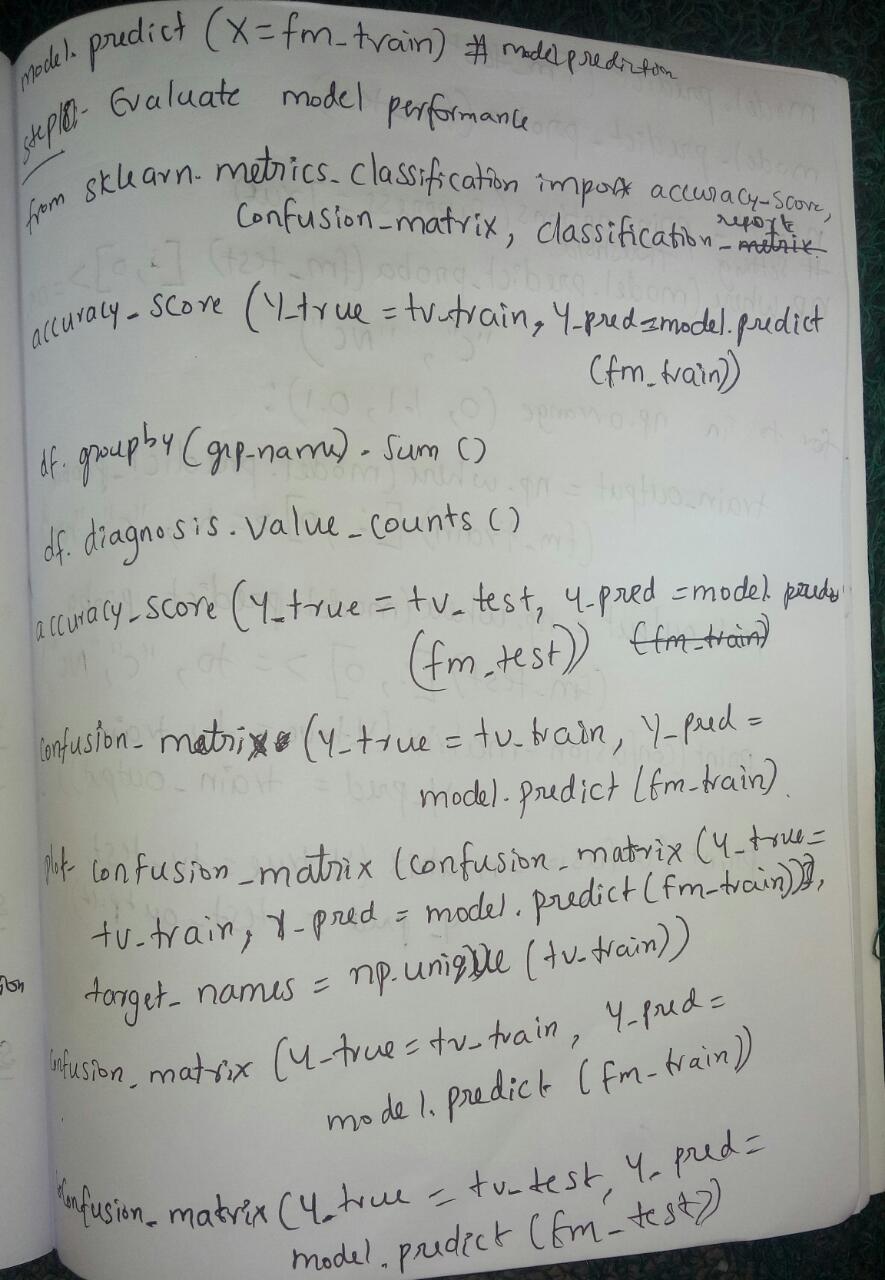 model. predict (X = fm_train) # model prediction
step 8:- Evaluate model performance
from sklearn. metrics. classification import accuracy_score,
confusion_matrix, classification_report
accuracy_score (Y_true = tv_train, Y_pred = model.predict
(fm_train))
df. groupby (grp_name). sum ()
df. diagnosis. value_counts ()
accuracy_score (Y_true = tv_test, y_pred = model.
(fm_test)) (fm_train)
confusion_matrix (Y_true = tv_train, Y_pred =
model. predict (fm_train)
plot_confusion_matrix (confusion_matrix (Y_true =
tv_train, Y_pred = model. predict (fm_train)),
target_names = np.unique (tv_train))
confusion_matrix (Y_true = tv_train, Y_pred =
model. predict (fm_train))
confusion_matrix (Y_true = tv_test, Y_pred =
model. predict (fm_test))